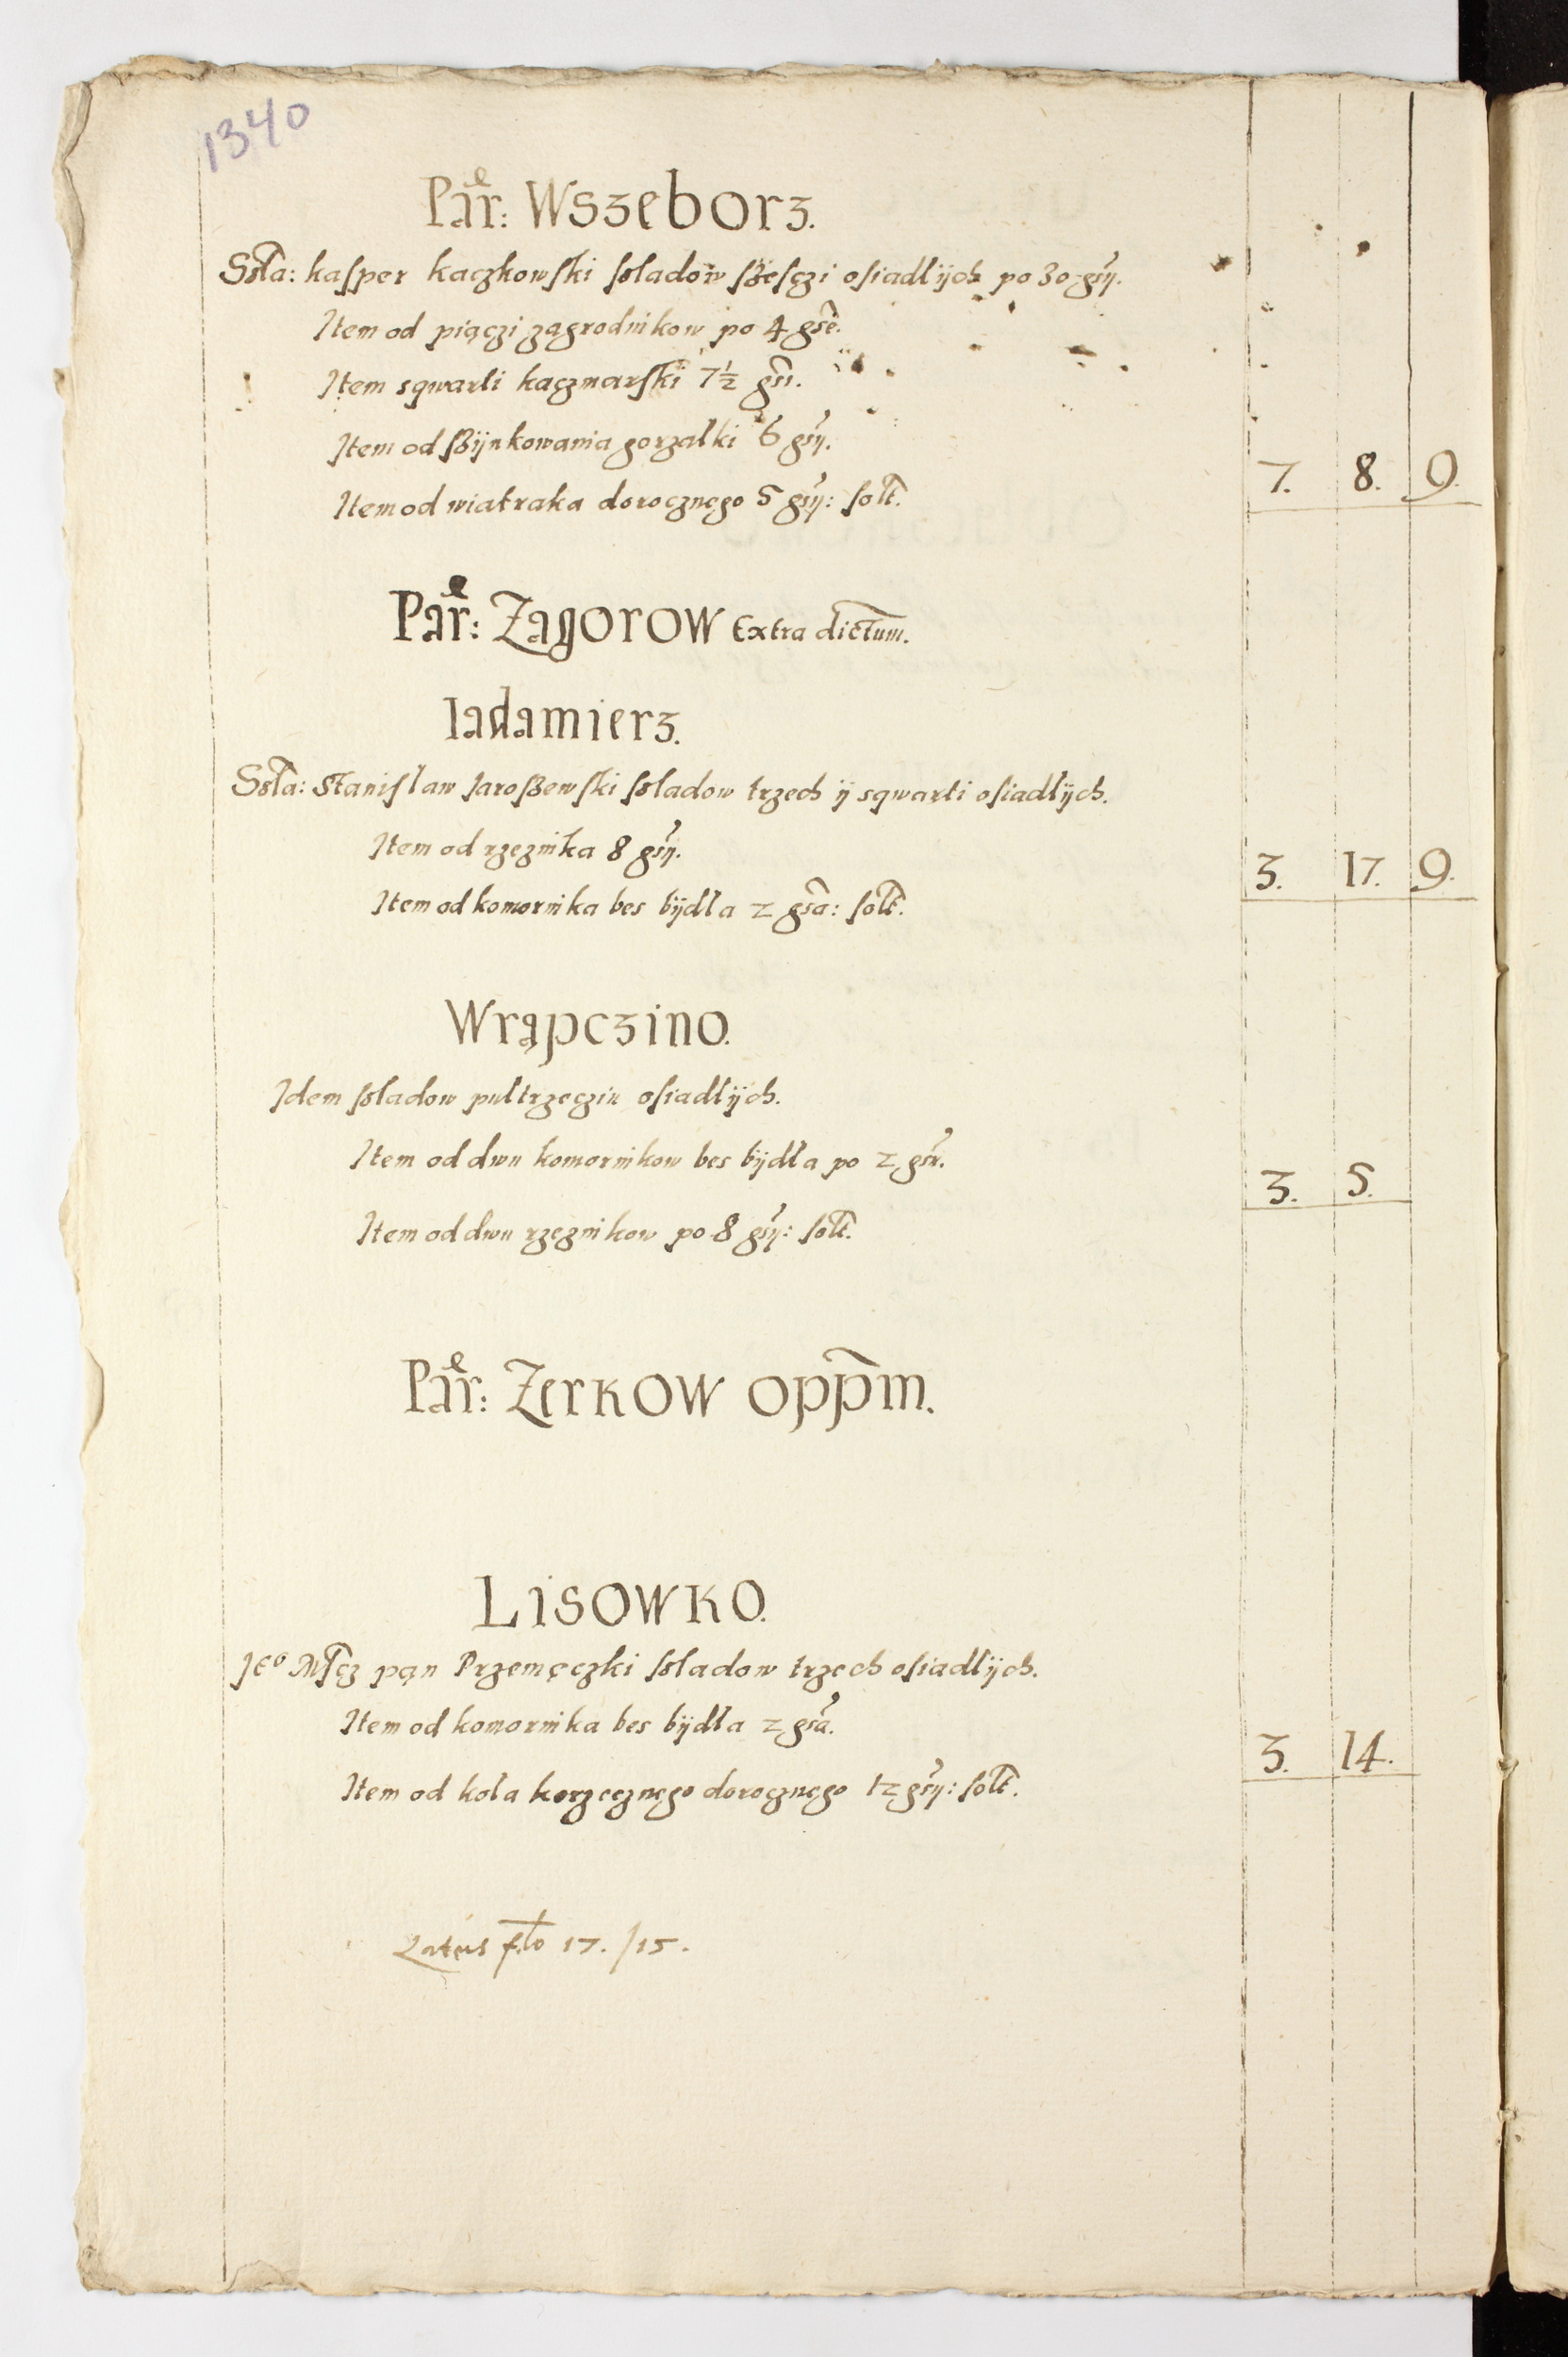 1340
Paͤr: Wszeborz.
Szła: kasper kaczkowski szladow szesczi osiadlÿch po 30 gsÿ.
Item od piączi zagrodnikow po 4 gse.
Item sqwarti kaczmarski 7½ gsi.
Item od szÿnkowania gorzalki 6 gsÿ.
Item od wiatraka dorocznego 5 gsÿ: solt. 7. 8. 9.
Par: Zagorow Extra dictum.
Iadamierz.
Szła: Stanislaw Jaroszewski szladow trzech ÿ sqwarti osiadlÿch.
Item od rzeznika 8 gsÿ.
Item od komornika bes bÿdła z gsa: solt. 3. 17. 9.
Wrąpczino.
Idem szladow pultrzecziu osiadlÿch.
Item od dwu komornikow bes bÿdła po z gsu.
Item od dwu rzeznikow po 8 gsÿ: solt. 3. 5.
Par: Zerkow oppm.
Lisowko.
Jeº Młcz pan Przemęczki szladow trzech osiadlÿch.
Item od komornika bes bÿdła z gsa.
Item od koła korzecznego dorocznego 1z gsÿ: solt. 3. 14.
Latus flo 17. /15.